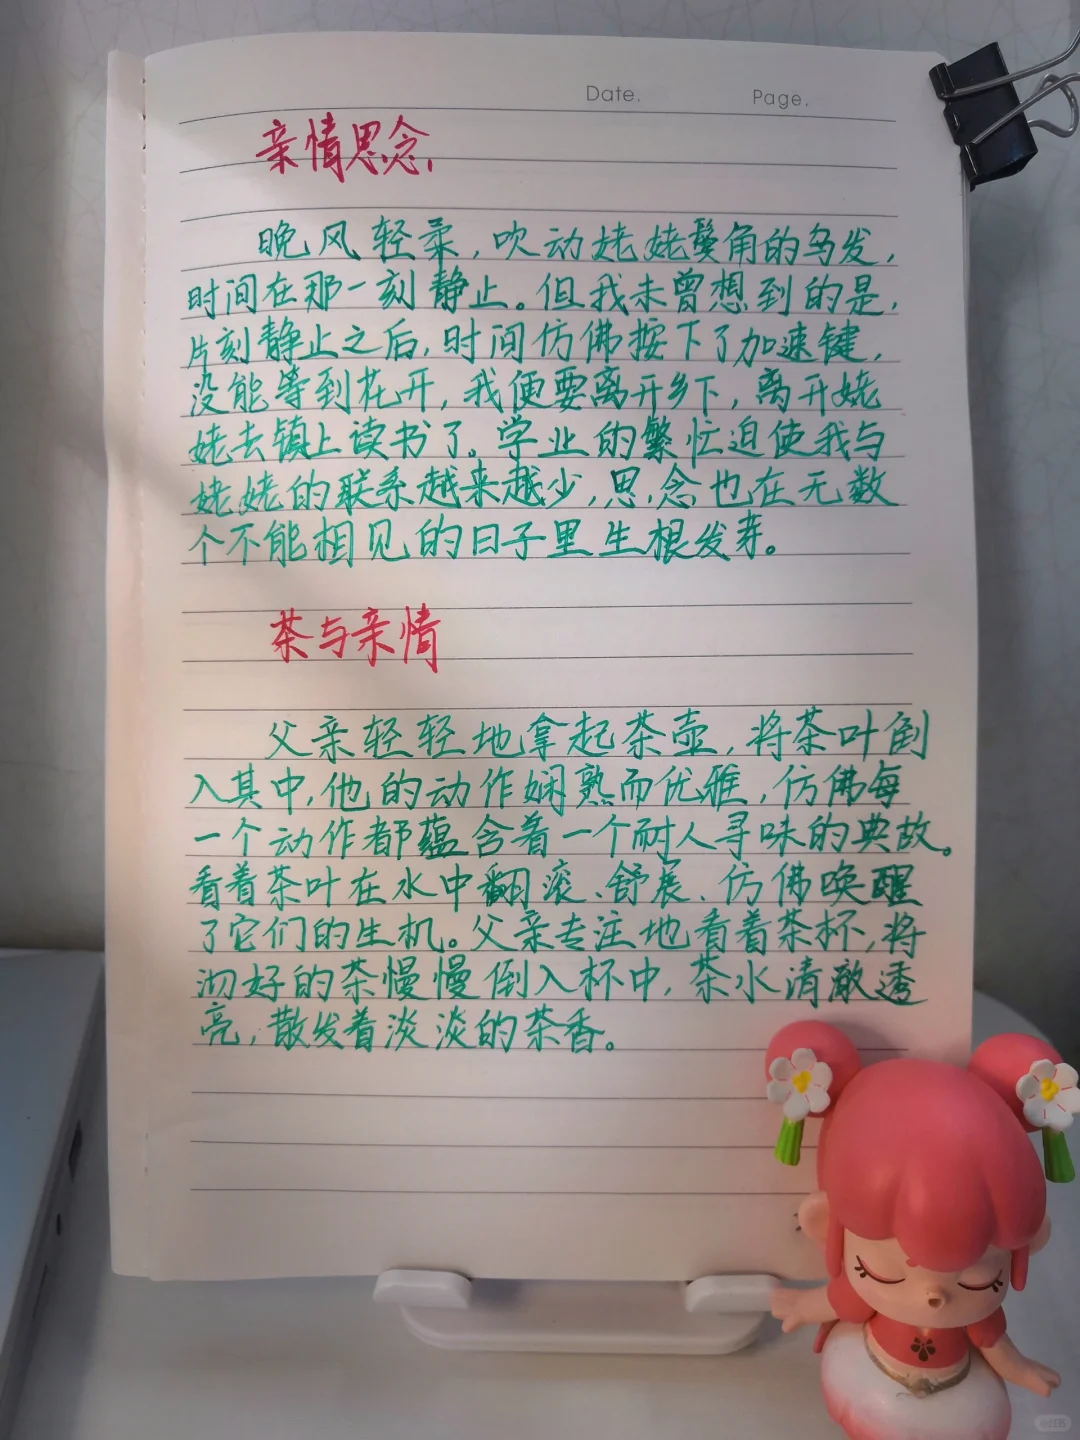 Date. Page.
亲情思念
晚风轻柔，吹动姥姥鬓角的乌发，
时间在那一刻静止。但我未曾想到的是，
片刻静止之后，时间仿佛按下了加速键，
没能等到花开，我便要离开乡下，离开姥
姥去镇上读书了。学业的繁忙迫使我与
姥姥的联系越来越少，思念也在无数
个不能相见的日子里生根发芽。
茶与亲情
父亲轻轻地拿起茶壶，将茶叶倒
入其中，他的动作娴熟而优雅，仿佛每
一个动作都蕴含着一个耐人寻味的典故。
看着茶叶在水中翻滚、舒展、仿佛唤醒
了它们的生机。父亲专注地看着茶杯，将
沏好的茶慢慢倒入杯中，茶水清澈透
亮，散发着淡淡的茶香。